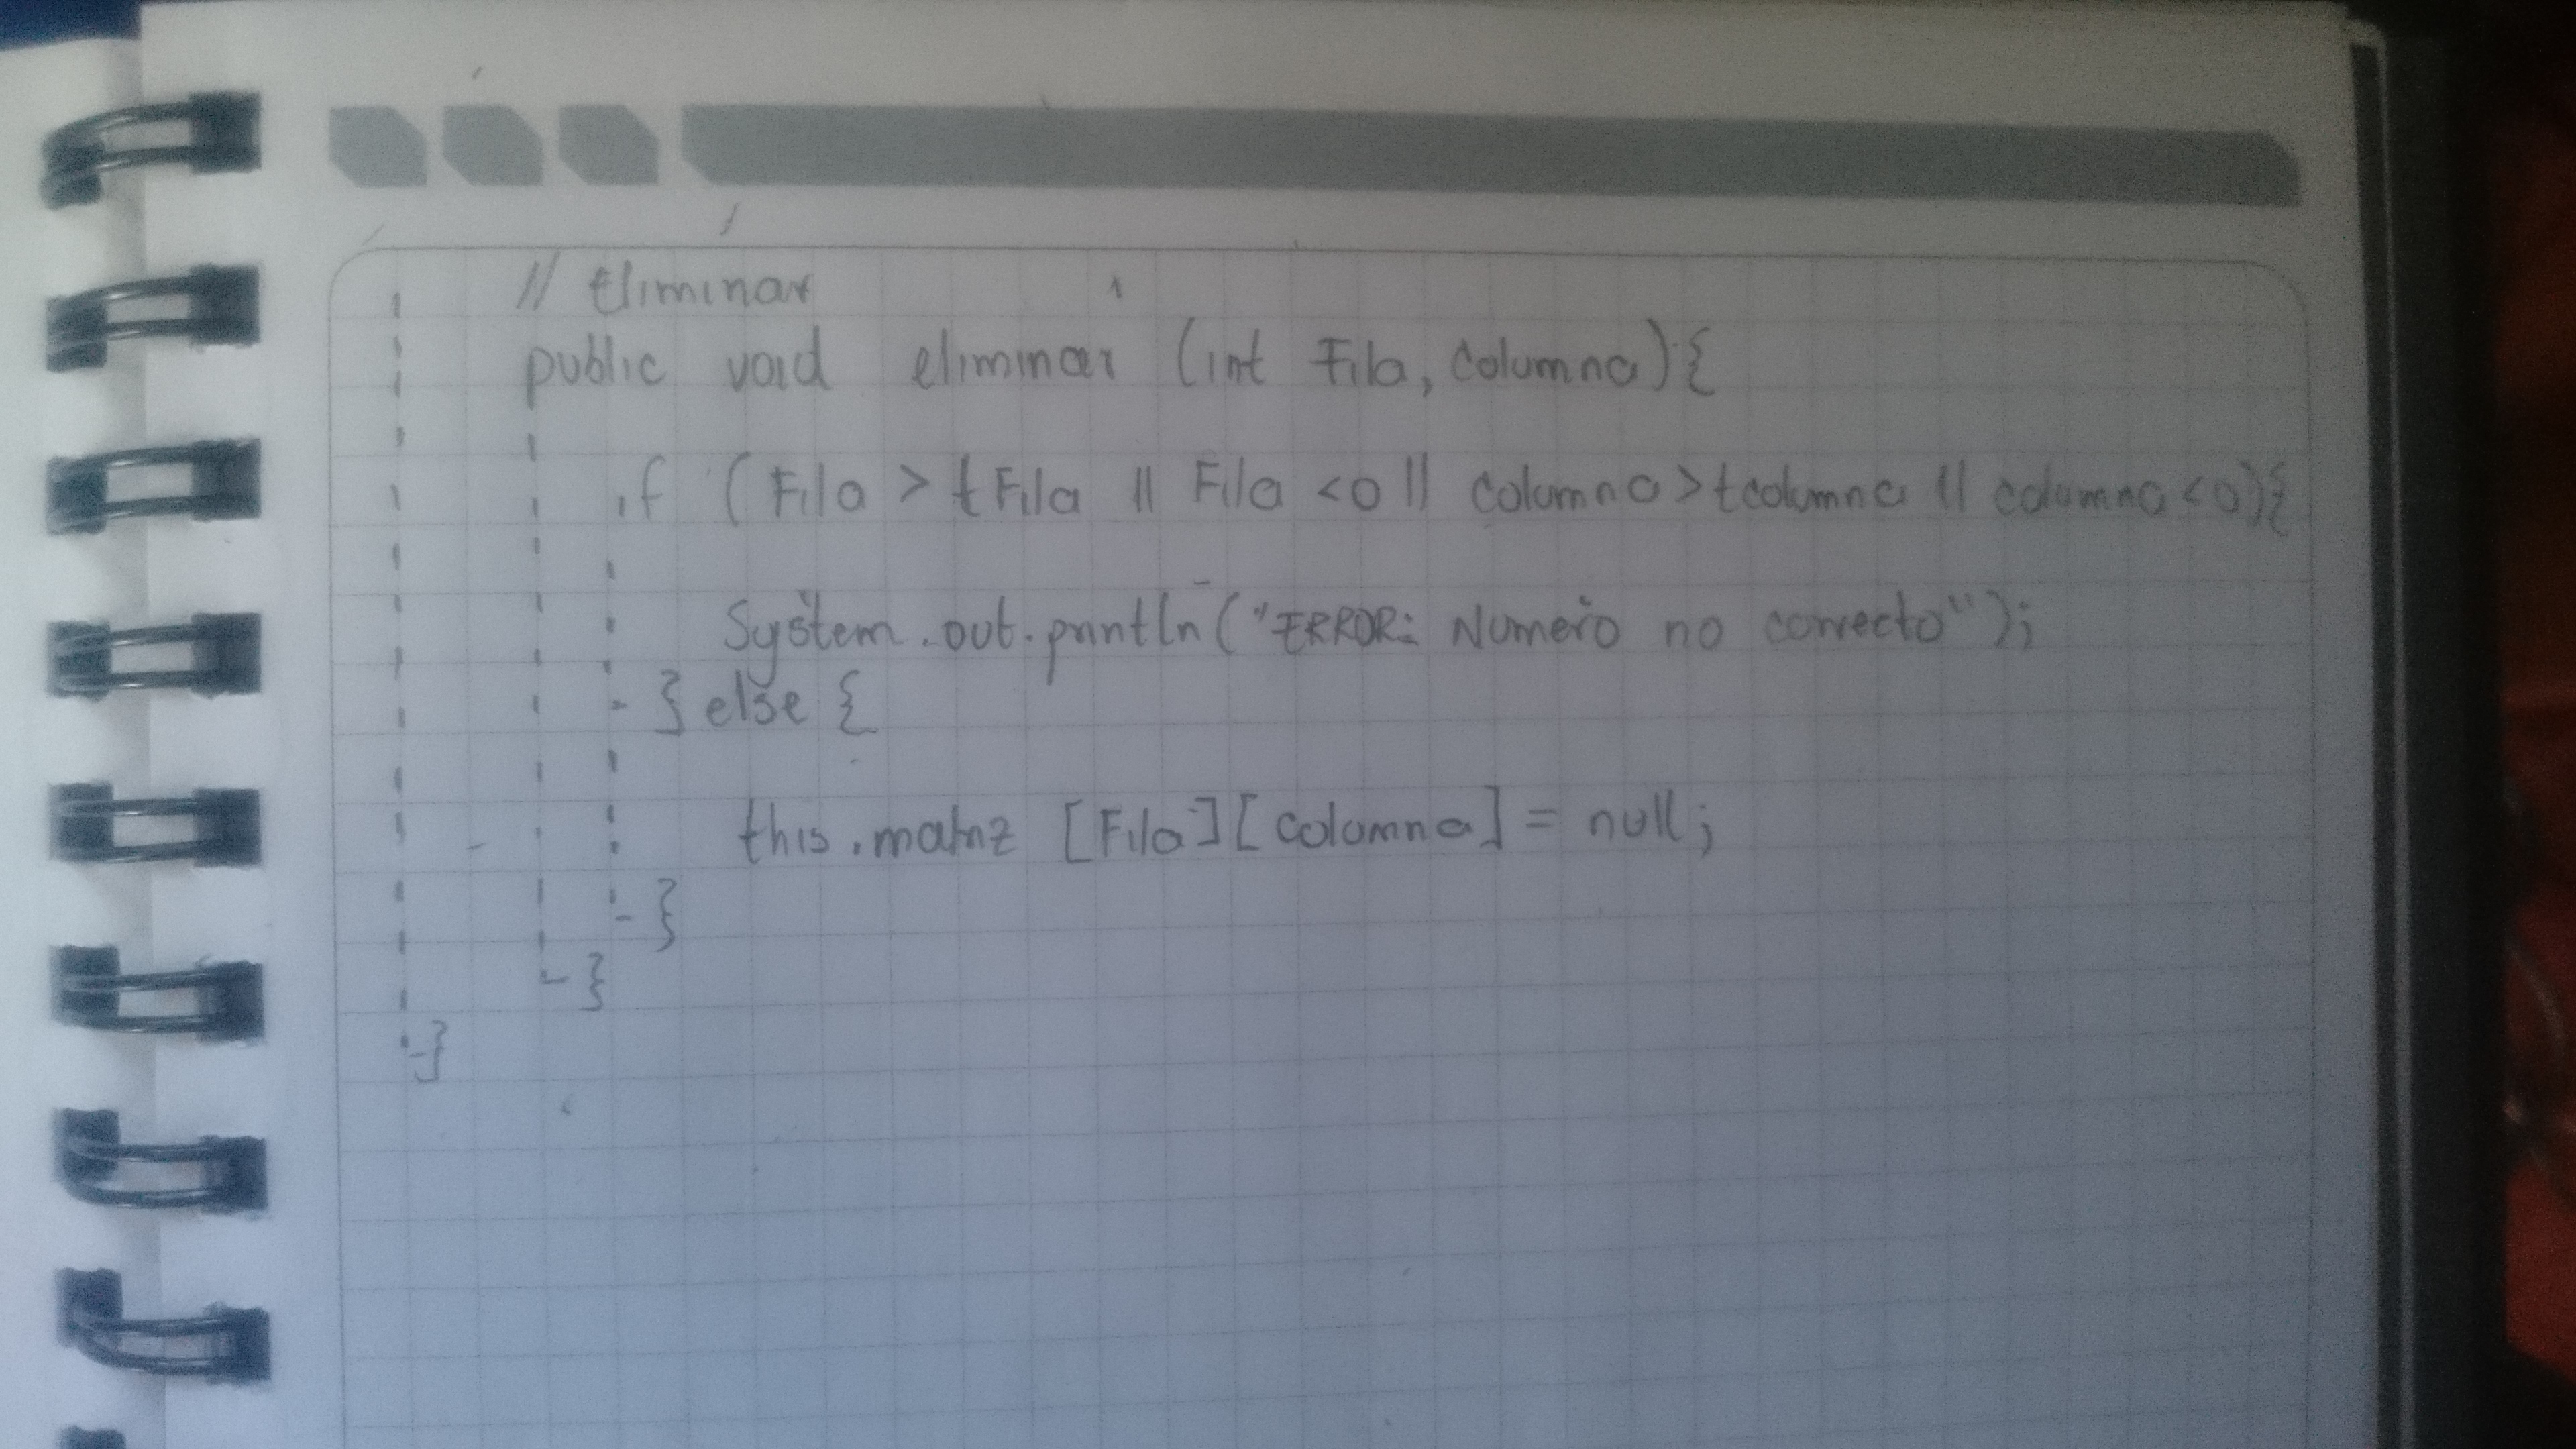 // Eliminar
public void eliminar (int Fila, columna){
if (Fila > tFila || Fila <0 || columna > tcolumna || columna <0){
System.out.println("ERROR: Numero no correcto");
} else {
this.matriz [Fila][columna] = null;
}
}
}